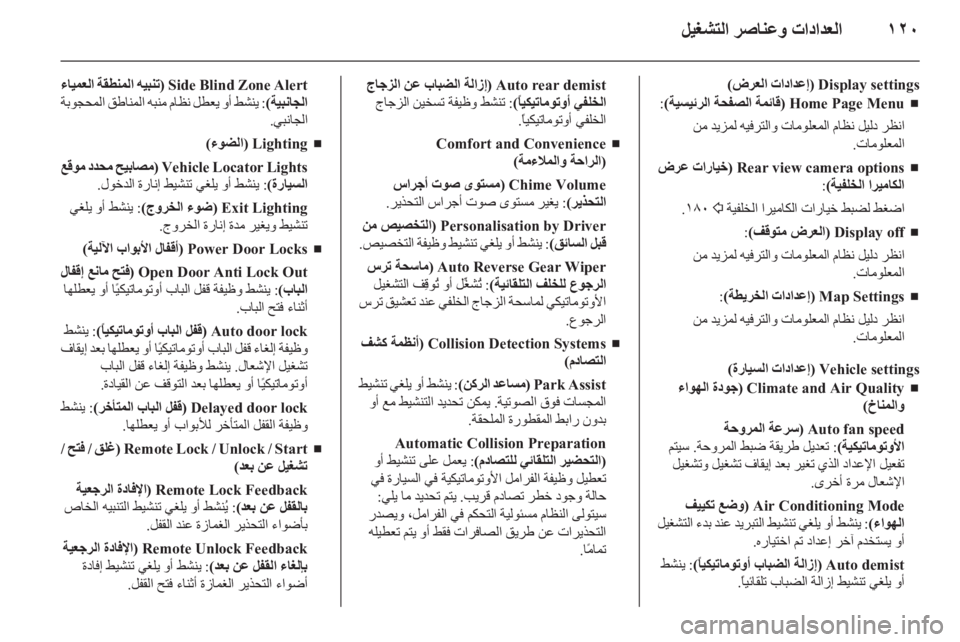 ١٢٠ العدادات وعناصر التشغيل
Display settings (إعدادات العرض)
■ Home Page Menu (قائمة الصفحة الرئيسية):
انظر دليل نظام المعلومات والترفيه لمزيد من
المعلومات.
■ Rear view camera options (خيارات عرض
الكاميرا الخلفية):
اضغط لضبط خيارات الكاميرا الخلفية ⇨ ١٨٠.
■ Display off (العرض متوقف):
انظر دليل نظام المعلومات والترفيه لمزيد من
المعلومات.
■ Map Settings (إعدادات الخريطة):
انظر دليل نظام المعلومات والترفيه لمزيد من
المعلومات.
Vehicle settings (إعدادات السيارة)
■ Climate and Air Quality (جودة الهواء
والمناخ)
Auto fan speed (سرعة المروحة
الأوتوماتيكية): تعديل طريقة ضبط المروحة. سيتم
تفعيل الإعداد الذي تغير بعد إيقاف تشغيل وتشغيل
الإشعال مرة أخرى.
Air Conditioning Mode (وضع تكييف
الهواء): ينشط أو يلغي تنشيط التبريد عند بدء التشغيل
أو يستخدم آخر إعداد تم اختياره.
Auto demist (إزالة الضباب أوتوماتيكياً): ينشط
أو يلغي تنشيط إزالة الضباب تلقائياً.
Auto rear demist (إزالة الضباب عن الزجاج
الخلفي أوتوماتيكياً): تنشط وظيفة تسخين الزجاج
الخلفي أوتوماتيكياً.
■ Comfort and Convenience
(الراحة والملاءمة)
Chime Volume (مستوى صوت أجراس
التحذير): يغير مستوى صوت أجراس التحذير.
Personalisation by Driver (التخصيص من
قبل السائق): ينشط أو يلغي تنشيط وظيفة التخصيص.
Auto Reverse Gear Wiper (ماسحة ترس
الرجوع للخلف التلقائية): تُشغّل أو تُوقِف التشغيل
الأوتوماتيكي لماسحة الزجاج الخلفي عند تعشيق ترس
الرجوع.
■ Collision Detection Systems (أنظمة كشف
التصادم)
Park Assist (مساعد الركن): ينشط أو يلغي تنشيط
المجسات فوق الصوتية. يمكن تحديد التنشيط مع أو
بدون ارباط المقطورة الملحقة.
Automatic Collision Preparation
(التحضير التلقائي للتصادم): يعمل على تنشيط أو
تعطيل وظيفة الفرامل الأوتوماتيكية في السيارة في
حالة وجود خطر تصادم قريب. يتم تحديد ما يلي:
سيتولى النظام مسئولية التحكم في الفرامل، ويصدر
التحذيرات عن طريق الصافرات فقط أو يتم تعطيله
تمامًا.
Side Blind Zone Alert (تنبيه المنطقة العمياء
الجانبية): ينشط أو يعطل نظام منبه المناطق المحجوبة
الجانبي.
■ Lighting (الضوء)
Vehicle Locator Lights (مصابيح محدد موقع
السيارة): ينشط أو يلغي تنشيط إنارة الدخول.
Exit Lighting (ضوء الخروج): ينشط أو يلغي
تنشيط ويغير مدة إنارة الخروج.
■ Power Door Locks (أقفال الأبواب الآلية)
Open Door Anti Lock Out (فتح مانع إقفال
الباب): ينشط وظيفة قفل الباب أوتوماتيكيًا أو يعطلها
أثناء فتح الباب.
Auto door lock (قفل الباب أوتوماتيكياً): ينشط
وظيفة إلغاء قفل الباب أوتوماتيكيًا أو يعطلها بعد إيقاف
تشغيل الإشعال. ينشط وظيفة إلغاء قفل الباب
أوتوماتيكيًا أو يعطلها بعد التوقف عن القيادة.
Delayed door lock (قفل الباب المتأخر): ينشط
وظيفة القفل المتأخر للأبواب أو يعطلها.
■ Remote Lock / Unlock / Start (غلق / فتح /
تشغيل عن بعد)
Remote Lock Feedback (الإفادة الرجعية
بالقفل عن بعد): يُنشّط أو يلغي تنشيط التنبيه الخاص
بأضواء التحذير الغمازة عند القفل.
Remote Unlock Feedback (الإفادة الرجعية
بإلغاء القفل عن بعد): ينشط أو يلغي تنشيط إفادة
أضواء التحذير الغمازة أثناء فتح القفل.